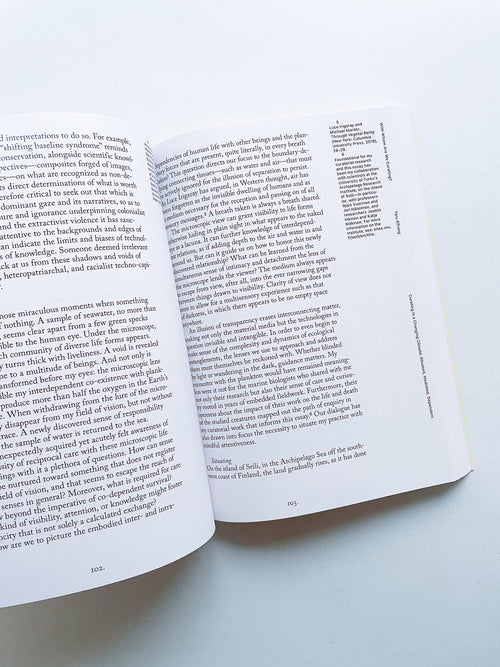 d interpretations to do so. For example,
"shifting baseline syndrome" reminds
conservation, alongside scientific knowl-
pectives—composites forged of images,
es—on what are recognized as non-de-
ts direct determinations of what is worth
erefore critical to seek out that which is
dominant gaze and its narratives, so as to
ure and ignorance underpinning colonialist
and the extractivist violence it has sanc-
attentive to the backgrounds and edges of
can indicate the limits and biases of techni-
s of knowledge. Someone deemed irrelevant
ck at us from these shadows and voids of
, heteropatriarchal, and racialist techno-capi-
nose miraculous moments when something
f nothing. A sample of seawater, no more than
seems clear apart from a few green specks
ible to the human eye. Under the microscope,
ch community of diverse life forms appears.
y turns thick with liveliness. A void is revealed
me to a multitude of beings. And not only is
ansformed before my eyes: the microscope lens
sible my interdependent co-existence with plank-
produce more than half the oxygen in the Earth's
e. When withdrawing from the lure of the micro-
y disappear from my field of vision, but not without
trace. A newly discovered sense of responsibility
the sample of water is returned to the sea.
nexpectedly acquired yet acutely felt awareness of
nsity of reciprocal care with these microscopic life
ings with it a plethora of questions. How can sense
be nurtured toward something that does not register
field of vision, and that seems to escape the reach of
senses in general? Moreover, what is required for care
w beyond the imperative of co-dependent survival?
kind of visibility, attention, or knowledge might foster
ocity that is not solely a calculated exchange?
ow are we to picture the embodied inter- and intra-
102.
dependencies of human life with other beings and the plan-
etary forces that are present, quite literally, in every breath
This question directs our focus to the boundary-de-
connecting tissues—such as water and air—that must
actively ignored for the illusion of separation to persist.
Luce Irigaray has argued, in Western thought, air has
as the invisible dwelling of humans and as
medium necessary for the reception and passing on of all
messages.⁵ A breath taken is always a breath shared.
The microscopic view can grant visibility to life forms
otherwise hiding in plain sight in what appears to the naked
eye as a lacuna. It can further knowledge of interdepend-
ent relations, as if adding depth to the air and water in and
around us. But can it guide us on how to honor this newly
discovered relationship? What can be learned from the
simultaneous sense of intimacy and detachment the lens of
the microscope lends the viewer? The medium always appears
to escape from view, after all, into the ever narrowing gaps
between things drawn to visibility. Clarity of view does not
seem to allow for a multisensory experience such that
of darkness, in which there appears to be no empty space
anywhere.
An illusion of transparency erases interconnecting matter,
making not only the material but the technologies in
question invisible and intangible. In order to even begin to
make sense of the complexity and dynamics of ecological
entanglements, the lenses we use to approach and address
them must themselves be reckoned with. Whether blinded
by light or wandering in the dark, guidance matters. My
encounter with the plankton would have remained meaning-
less were it not for the marine biologists who shared with me
not only their research but also their sense of care and concern
rooted in years of embedded fieldwork. Furthermore, their
openness about the impact of their work on the life and death
of the studied creatures mapped out the path of enquiry in
my curatorial work that informs this essay.⁶ Our dialogue has
also drawn into focus the necessity to situate my practice with
mindful attentiveness.
Situating
On the island of Seili, in the Archipelago Sea off the south-
west coast of Finland, the land gradually rises, as it has done
103.
5
Luce Irigaray and
Michael Marder,
Through Vegetal Being
(New York: Columbia
University Press, 2016),
6
Foundational for my
curatorial research
and this essay has
been my collaboration
with scientists at the
University of Turku's
Archipelago Research
Institute, on the island
of Seili—in particu-
lar, with professors
Ilppo Vuorinen and
Jari Hänninen, and
researchers Jasmin
Inkinen and Katja
Mäkinen. For more
information on the
institute, see: sites.utu.
fi/seili/en/info.
Taru Elfving